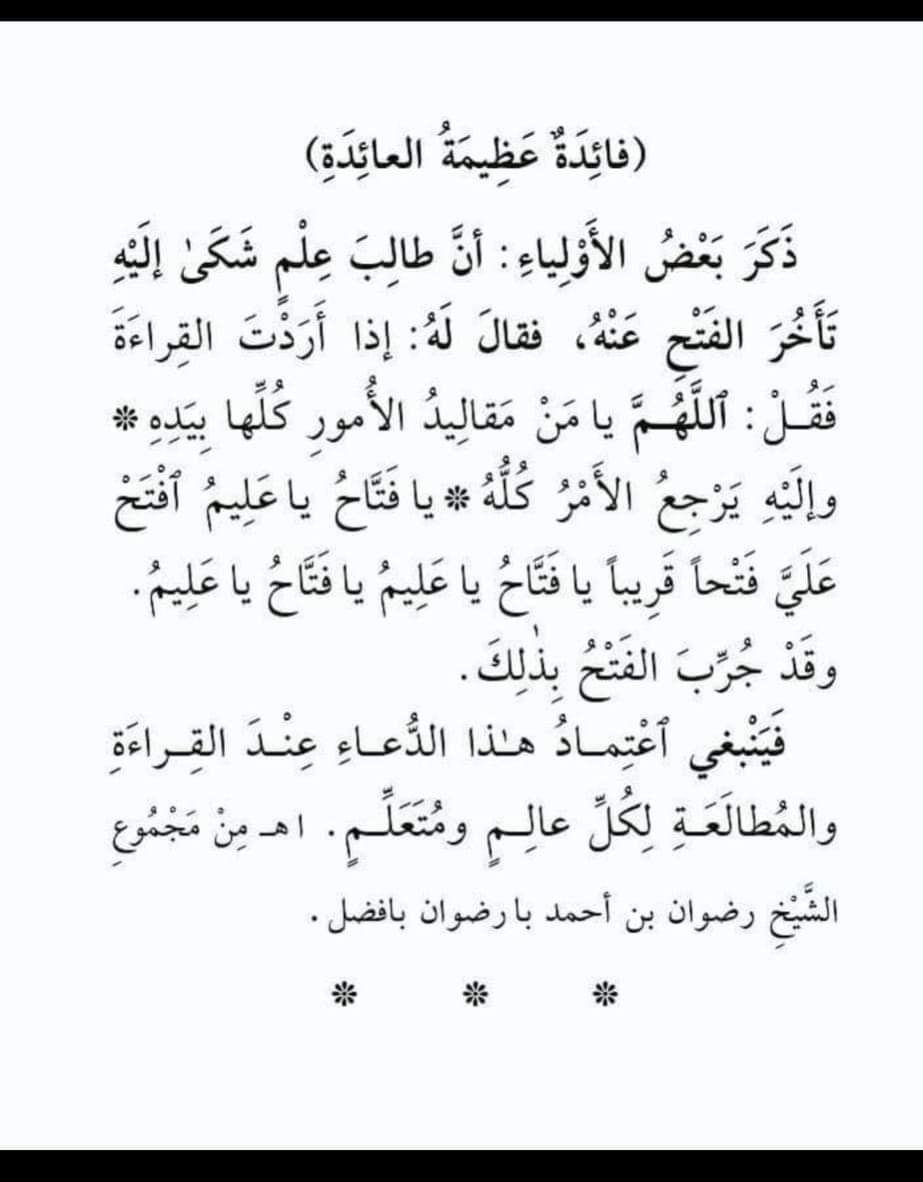 (فائِدَةٌ عَظِيمَةُ العائِدَةِ)
ذَكَرَ بَعْضُ الأَوْلِياءِ: أنَّ طالِبَ عِلْمٍ شَكَىٰ إلَيْهِ
تَأَخُّرَ الفَتْحِ عَنْهُ، فقالَ لَهُ: إذا أَرَدْتَ القِراءَةَ
فَقُـلْ: ٱللَّهُـمَّ يا مَنْ مَقالِيدُ الأُمورِ كُلِّها بِيَدِهِ ❊
وإلَيْهِ يَرْجِعُ الأَمْرُ كُلُّهُ ❊ يا فَتَّاحُ يا عَلِيمُ ٱفْتَحْ
عَلَيَّ فَتْحاً قَرِيباً يا فَتَّاحُ يا عَلِيمُ يا فَتَّاحُ يا عَلِيمُ.
وقَدْ جُرِّبَ الفَتْحُ بِذٰلِكَ.
فَيَنْبغي ٱعْتِمـادُ هـٰذا الدُّعـاءِ عِنْـدَ القِـراءَةِ
والمُطالَعَـةِ لِكُلِّ عالِـمٍ ومُتَعَلِّـمٍ. اهـ مِنْ مَجْمُوعِ
الشَّيْخِ رضوان بن أحمد بارضوان بافضل.
❊ ❊ ❊